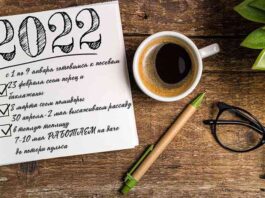 2022
с 1 по 9 января готовимся к посевам
23 февраля сеем перец и
баклажаны
8 марта сеем помидоры
30 апреля - 2 мая высаживаем рассаду
в теплую теплицу
7-10 мая РАБОТАЕМ на даче
до потери пульса